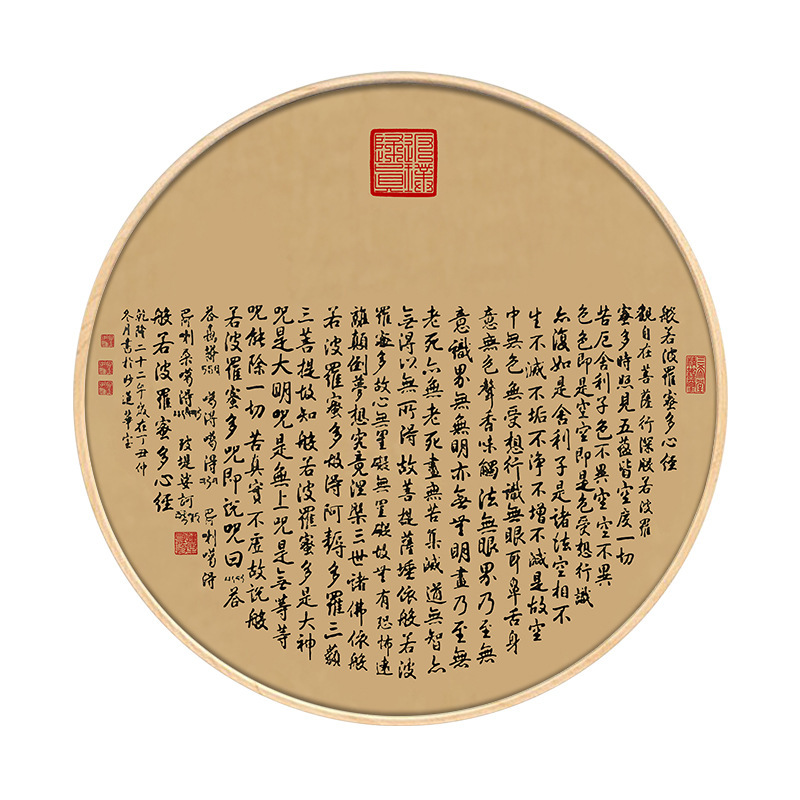 般若波羅蜜多心經
觀自在菩薩行深般若波羅
蜜多時照見五蘊皆空度一切
苦厄舍利子色不異空空不異
色色即是空空即是色受想行識
亦復如是舍利子是諸法空相不
生不滅不垢不淨不增不減是故空
中無色無受想行識無眼耳鼻舌身
意無色聲香味觸法無眼界乃至無
意識界無無明亦無無明盡乃至無
老死亦無老死盡無苦集滅道無智亦
無得以無所得故菩提薩埵依般若波
羅蜜多故心無罣礙無罣礙故無有恐怖遠
離顛倒夢想究竟涅槃三世諸佛依般
若波羅蜜多故得阿耨多羅三藐
三菩提故知般若波羅蜜多是大神
咒是大明咒是無上咒是無等等
咒能除一切苦真實不虛故說般
若波羅蜜多咒即說咒曰
得 得 喇 得
喇 得 堤娑訶
般若波羅蜜多心經
乾隆二十二年歲在丁丑仲
冬月書於妙蓮華室